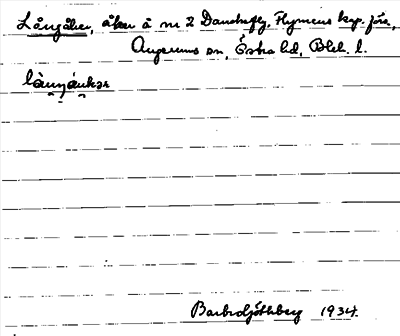 Långåker, åker å nr 2 Danskefly, Flymens kap. förs.,
Augerums sn, Östra hd, Blek. l.
låŋŋåukər
Barbro 1934.